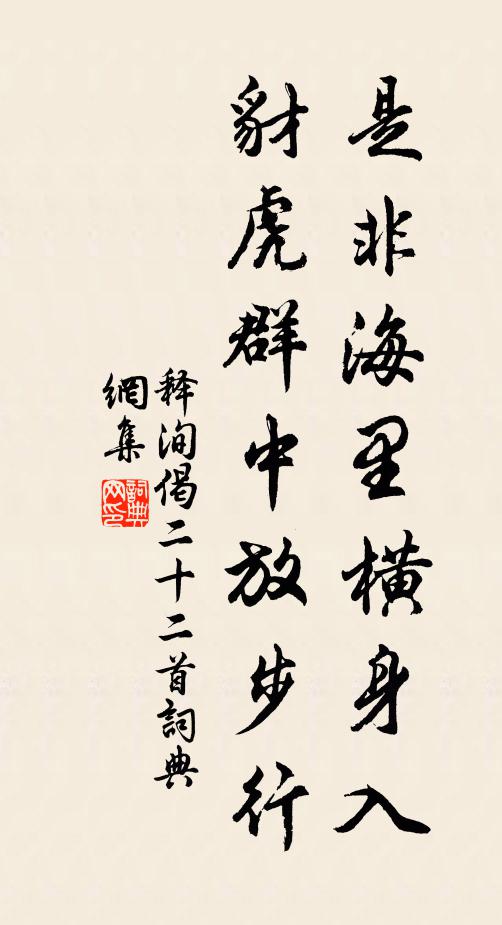 是非海里橫身入
豺虎群中放步行
释洵偈二十二首詞典
網集
詞典
网印